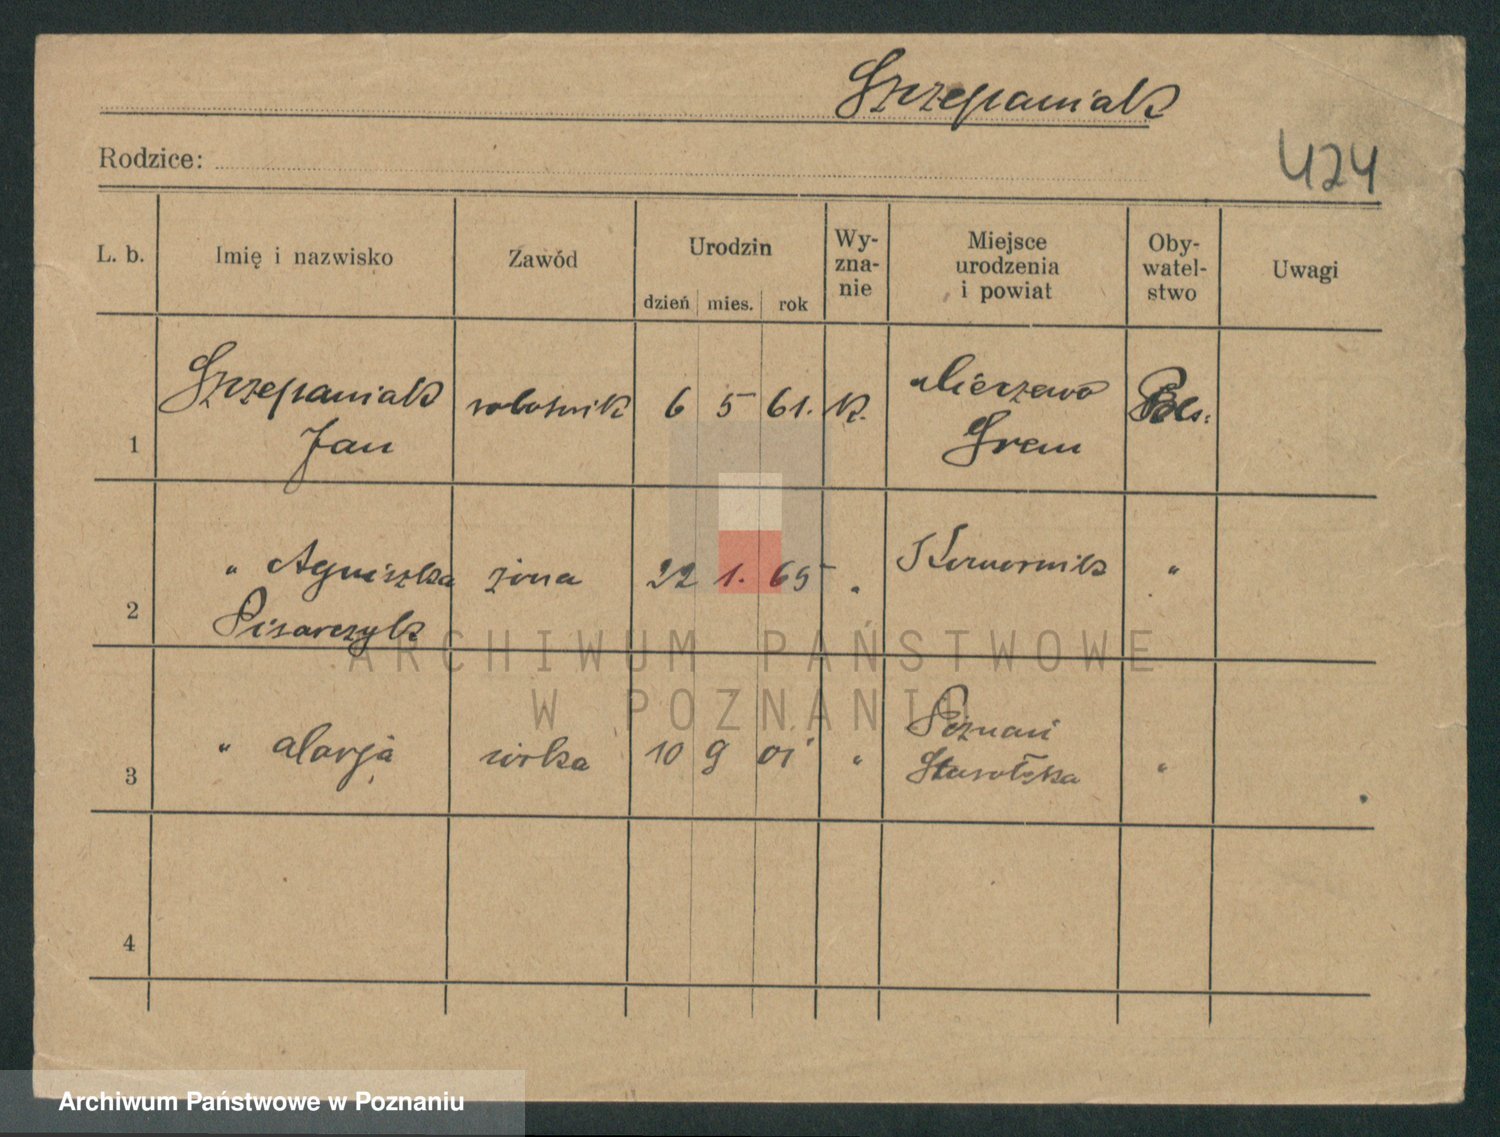 Szczepaniak
Rodzice:
424
L. b. Imię i nazwisko Zawód Urodzin dzień mies. rok Wy-zna-nie Miejsce urodzenia i powiat Oby-watel-stwo Uwagi
1 Szczepaniak Jan robotnik 6 5 61. k. Mierzewo Śrem Pols:
2 " Agniszka Pisarczyk żona 22 1. 65 " "
3 " Marja córka 10 9 01 " Poznań Starołęka "
4
ARCHIWUM PAŃSTWOWE
W POZNANIU
Archiwum Państwowe w Poznaniu